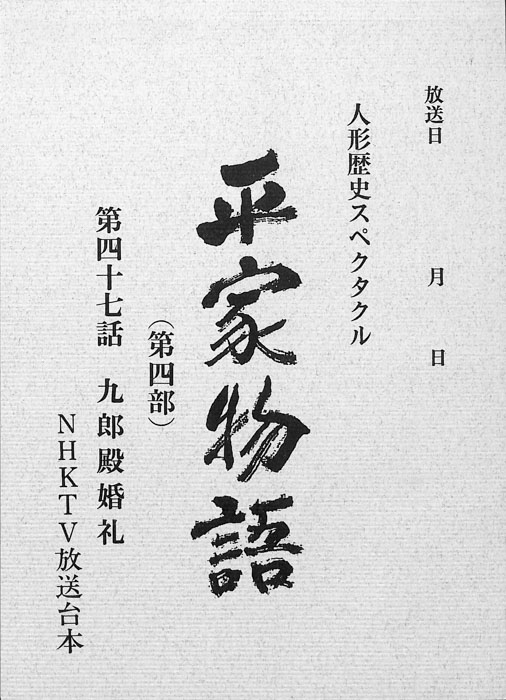 放送日　月　日
人形歴史スペクタクル
平家物語
（第四部）
第四十七話　九郎殿婚礼
ＮＨＫＴＶ放送台本